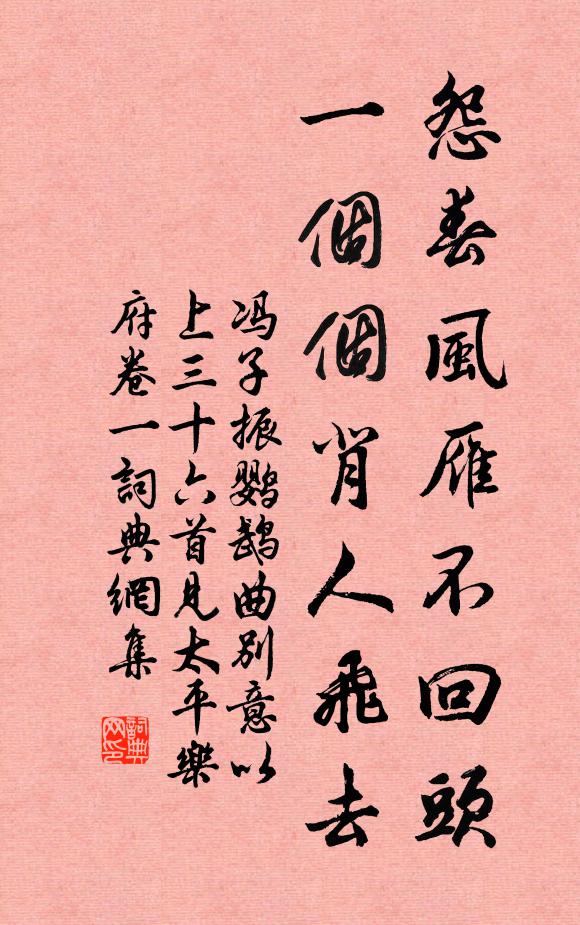 怨春風雁不回頭
一個個背人飛去
冯子振鹦鹉曲別意以
上三十六首見太平樂
府卷一詞典網集
詞典網印